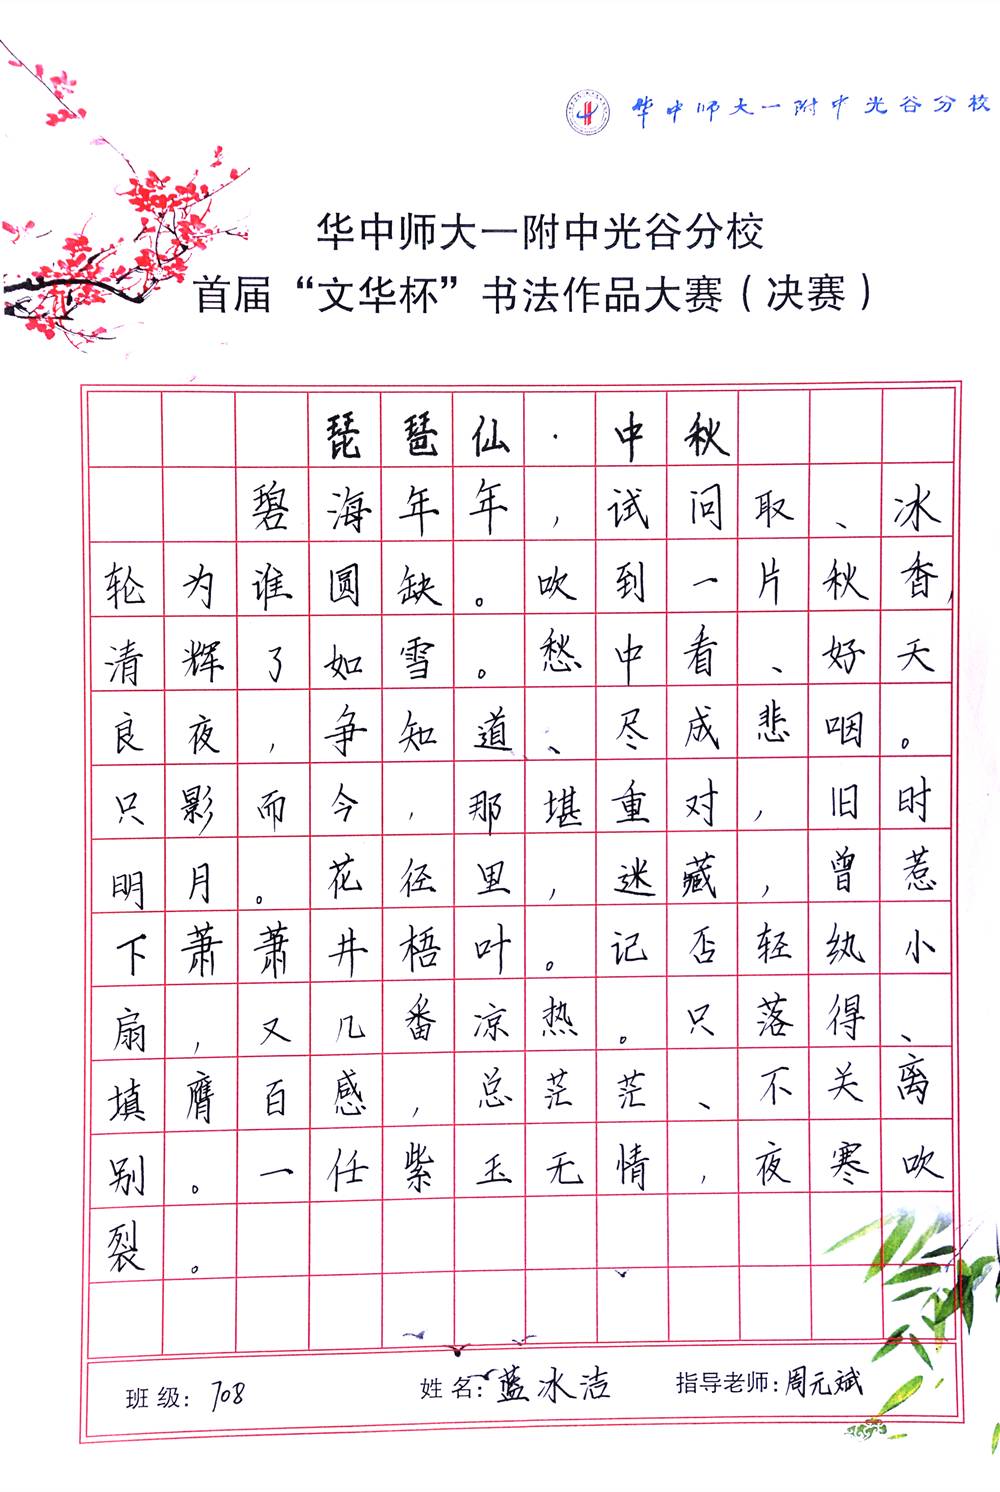 华中师大一附中光谷分校
华中师大一附中光谷分校
首届“文华杯”书法作品大赛（决赛）
琵琶仙·中秋
碧海年年，试问取、冰
轮为谁圆缺。吹到一片秋香，
清辉了如雪。愁中看、好天
良夜，争知道、尽成悲咽。
只影而今，那堪重对，旧时
明月。花径里，迷藏，曾惹
下萧萧井梧叶。记否轻纨小
扇，又几番凉热。只落得、
填膺百感，总茫茫、不关离
别。一任紫玉无情，夜寒吹
裂。
班级：708 姓名：蓝冰洁 指导老师：周元斌